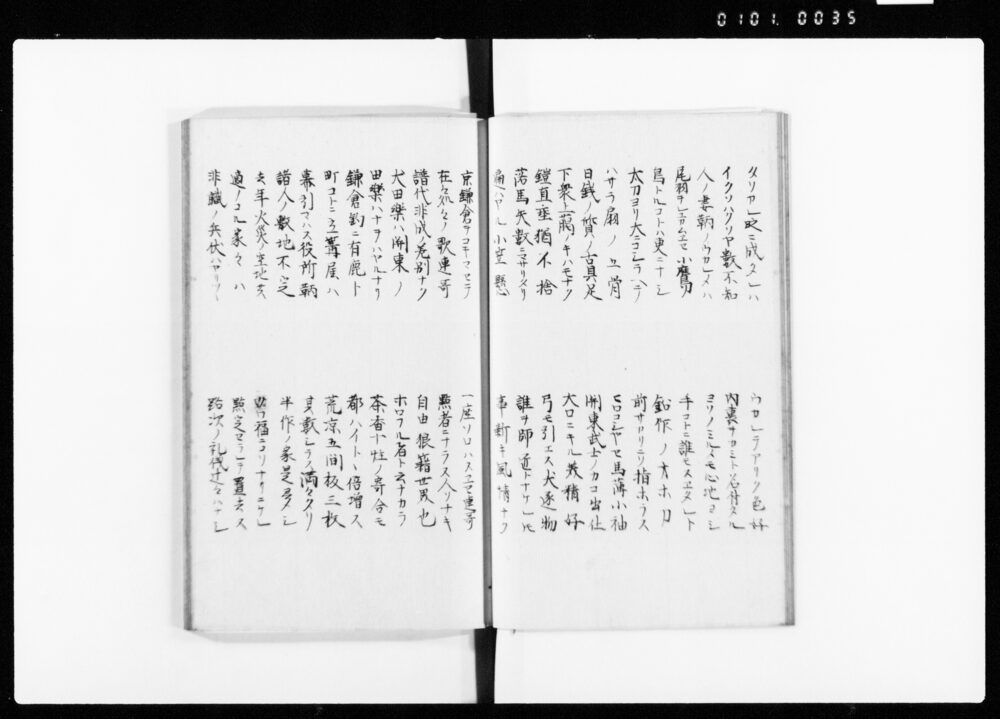 0101.0035
タソカレ時ニ成ヌレハ
ウカレテアリク色好
イクソハクソヤ數不知
内裏ヲカミト名付タル
人ノ妻鞆ノウカレメハ
ヨソノミルメモ心地アシ
尾羽ヲレユカムエセ小鷹
手コトニ誰モスエタレト
鳥トルコトハ更ニナシ
鉛作ノオホ刀
太刀ヨリ大ニコシラヘテ
前サカリニソ指ホラス
ハサラ扇ノ五骨
ヒロコシヤセ馬薄小袖
日銭ノ質ノ古具足
關東武士ノカコ出仕
下衆上臈ノキハモナク
大口ニキル美精好
鎧直垂猶不捨
弓モ引エス犬逐物
落馬矢數ニマサリタリ
誰ヲ師匠トナケレトモ
遍ハヤル小笠懸
事新キ風情ナク
京鎌倉ヲコキマセテ
一座ソロハヌエセ連哥
在々処々ノ歌連哥
點者ニナラヌ人ソナキ
譜代非成ノ差別ナク
自由狼籍世界也
犬田樂ハ開東ノ
ホロフル者ト云ナカラ
田樂ハナヲハヤルナリ
茶香十炷ノ寄合モ
鎌倉釣ニ有鹿ト
都ハイトヽ倍増ス
町コトニ立篝屋ハ
荒凉五間板三枚
幕引マハス役所鞆
其數シラス満々タリ
諸人ノ敷地不定
半作ノ家是多シ
去年火災ノ空地共
福ニコソナリニケレ
適ノコル家々ハ
點定セラレテ置去ヌ
非職ノ兵仗ハヤリツヽ
路次ノ礼儀辻々ハナシ